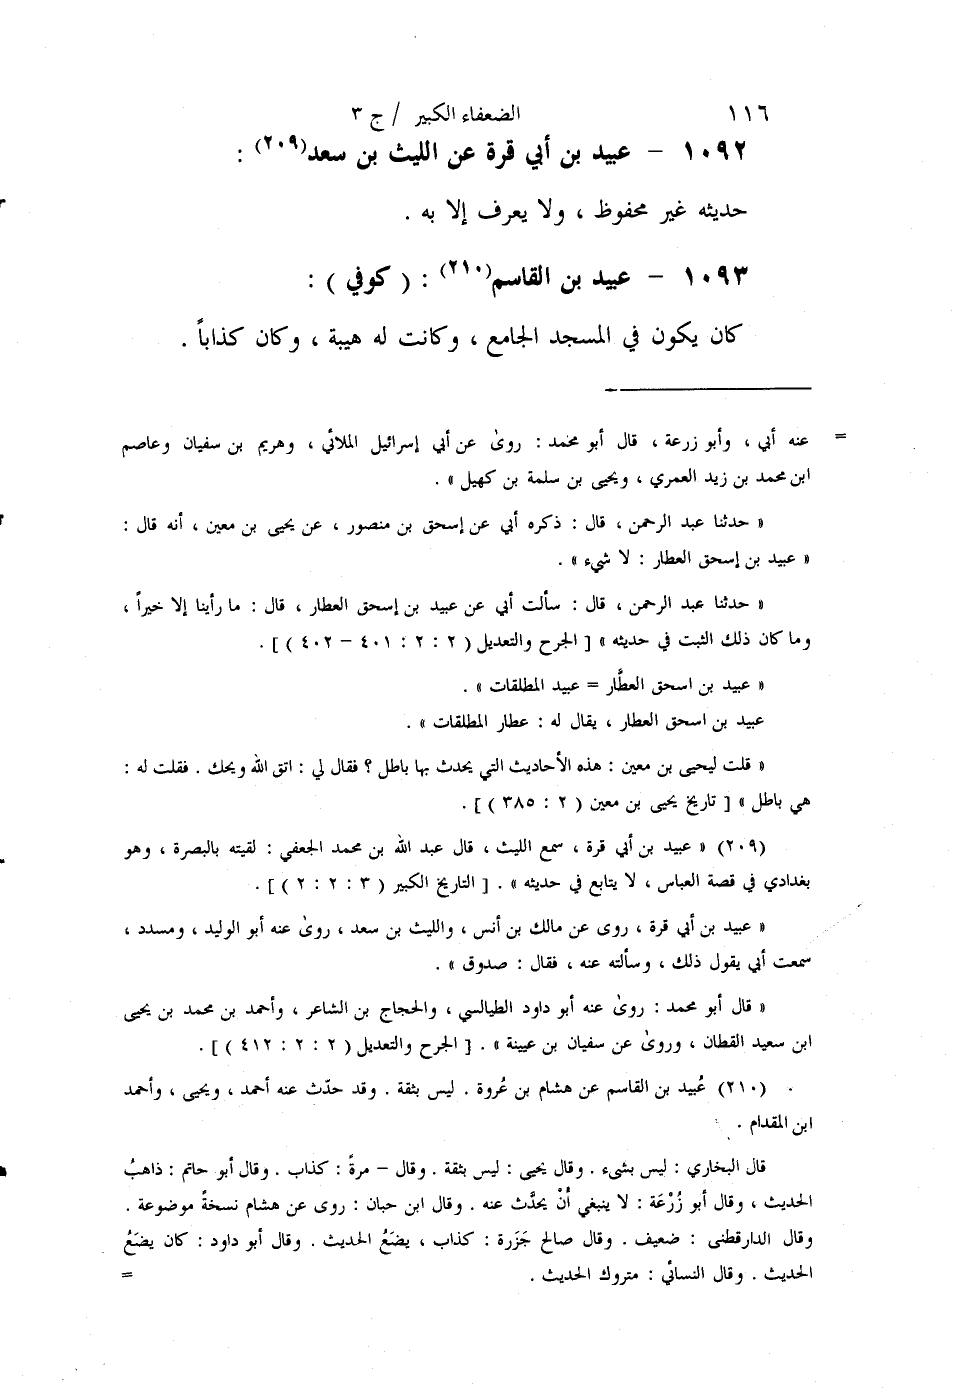 ١١٦ الضعفاء الكبير / ج ٣
١٠٩٢ – عبيد بن أبي قرة عن الليث بن سعد(٢٠٩) :
حديثه غير محفوظ ، ولا يعرف إلا به .
١٠٩٣ – عبيد بن القاسم(٢١٠) : ( كوفي ) :
كان يكون في المسجد الجامع ، وكانت له هيبة ، وكان كذاباً .
= عنه أبي ، وأبو زرعة ، قال أبو محمد : روىٰ عن أبي إسرائيل الملائي ، وهريم بن سفيان وعاصم
ابن محمد بن زيد العمري ، ويحيى بن سلمة بن كهيل » .
« حدثنا عبد الرحمن ، قال : ذكره أبي عن إسحق بن منصور ، عن يحيى بن معين ، أنه قال :
« عبيد بن إسحق العطار : لا شيء » .
« حدثنا عبد الرحمن ، قال : سألت أبي عن عبيد بن إسحق العطار ، قال : ما رأينا إلا خيراً ،
وما كان ذلك الثبت في حديثه » [ الجرح والتعديل ( ٢ : ٢ : ٤٠١ – ٤٠٢ ) ] .
« عبيد بن اسحق العطَّار = عبيد المطلقات » .
عبيد بن اسحق العطار ، يقال له : عطار المطلقات » .
« قلت ليحيى بن معين : هذه الأحاديث التي يحدث بها باطل ؟ فقال لي : اتق الله ويحك . فقلت له :
هي باطل » [ تاريخ يحيى بن معين ( ٢ : ٣٨٥ ) ] .
(٢٠٩) « عبيد بن أبي قرة ، سمع الليث ، قال عبد الله بن محمد الجعفي : لقيته بالبصرة ، وهو
بغدادي في قصة العباس ، لا يتابع في حديثه » . [ التاريخ الكبير ( ٣ : ٢ : ٢ ) ] .
« عبيد بن أبي قرة ، روى عن مالك بن أنس ، والليث بن سعد ، روىٰ عنه أبو الوليد ، ومسدد ،
سمعت أبي يقول ذلك ، وسألته عنه ، فقال : صدوق » .
« قال أبو محمد : روىٰ عنه أبو داود الطيالسي ، والحجاج بن الشاعر ، وأحمد بن محمد بن يحيى
ابن سعيد القطان ، وروىٰ عن سفيان بن عيينة » . [ الجرح والتعديل ( ٢ : ٢ : ٤١٢ ) ] .
(٢١٠) عُبيد بن القاسم عن هشام بن عُروة . ليس بثقة . وقد حدّث عنه أحمد ، ويحيى ، وأحمد
ابن المقدام .
قال البخاري : ليس بشىء . وقال يحيى : ليس بثقة . وقال – مرةً : كذاب . وقال أبو حاتم : ذاهبُ
الحديث ، وقال أبو زُرْعَة : لا ينبغي أنْ يحدَّث عنه . وقال ابن حبان : روى عن هشام نسخةً موضوعة .
وقال الدارقطنى : ضعيف . وقال صالح جَزَرة : كذاب ، يضَعُ الحديث . وقال أبو داود : كان يضَعُ
الحديث . وقال النسائي : متروك الحديث . =